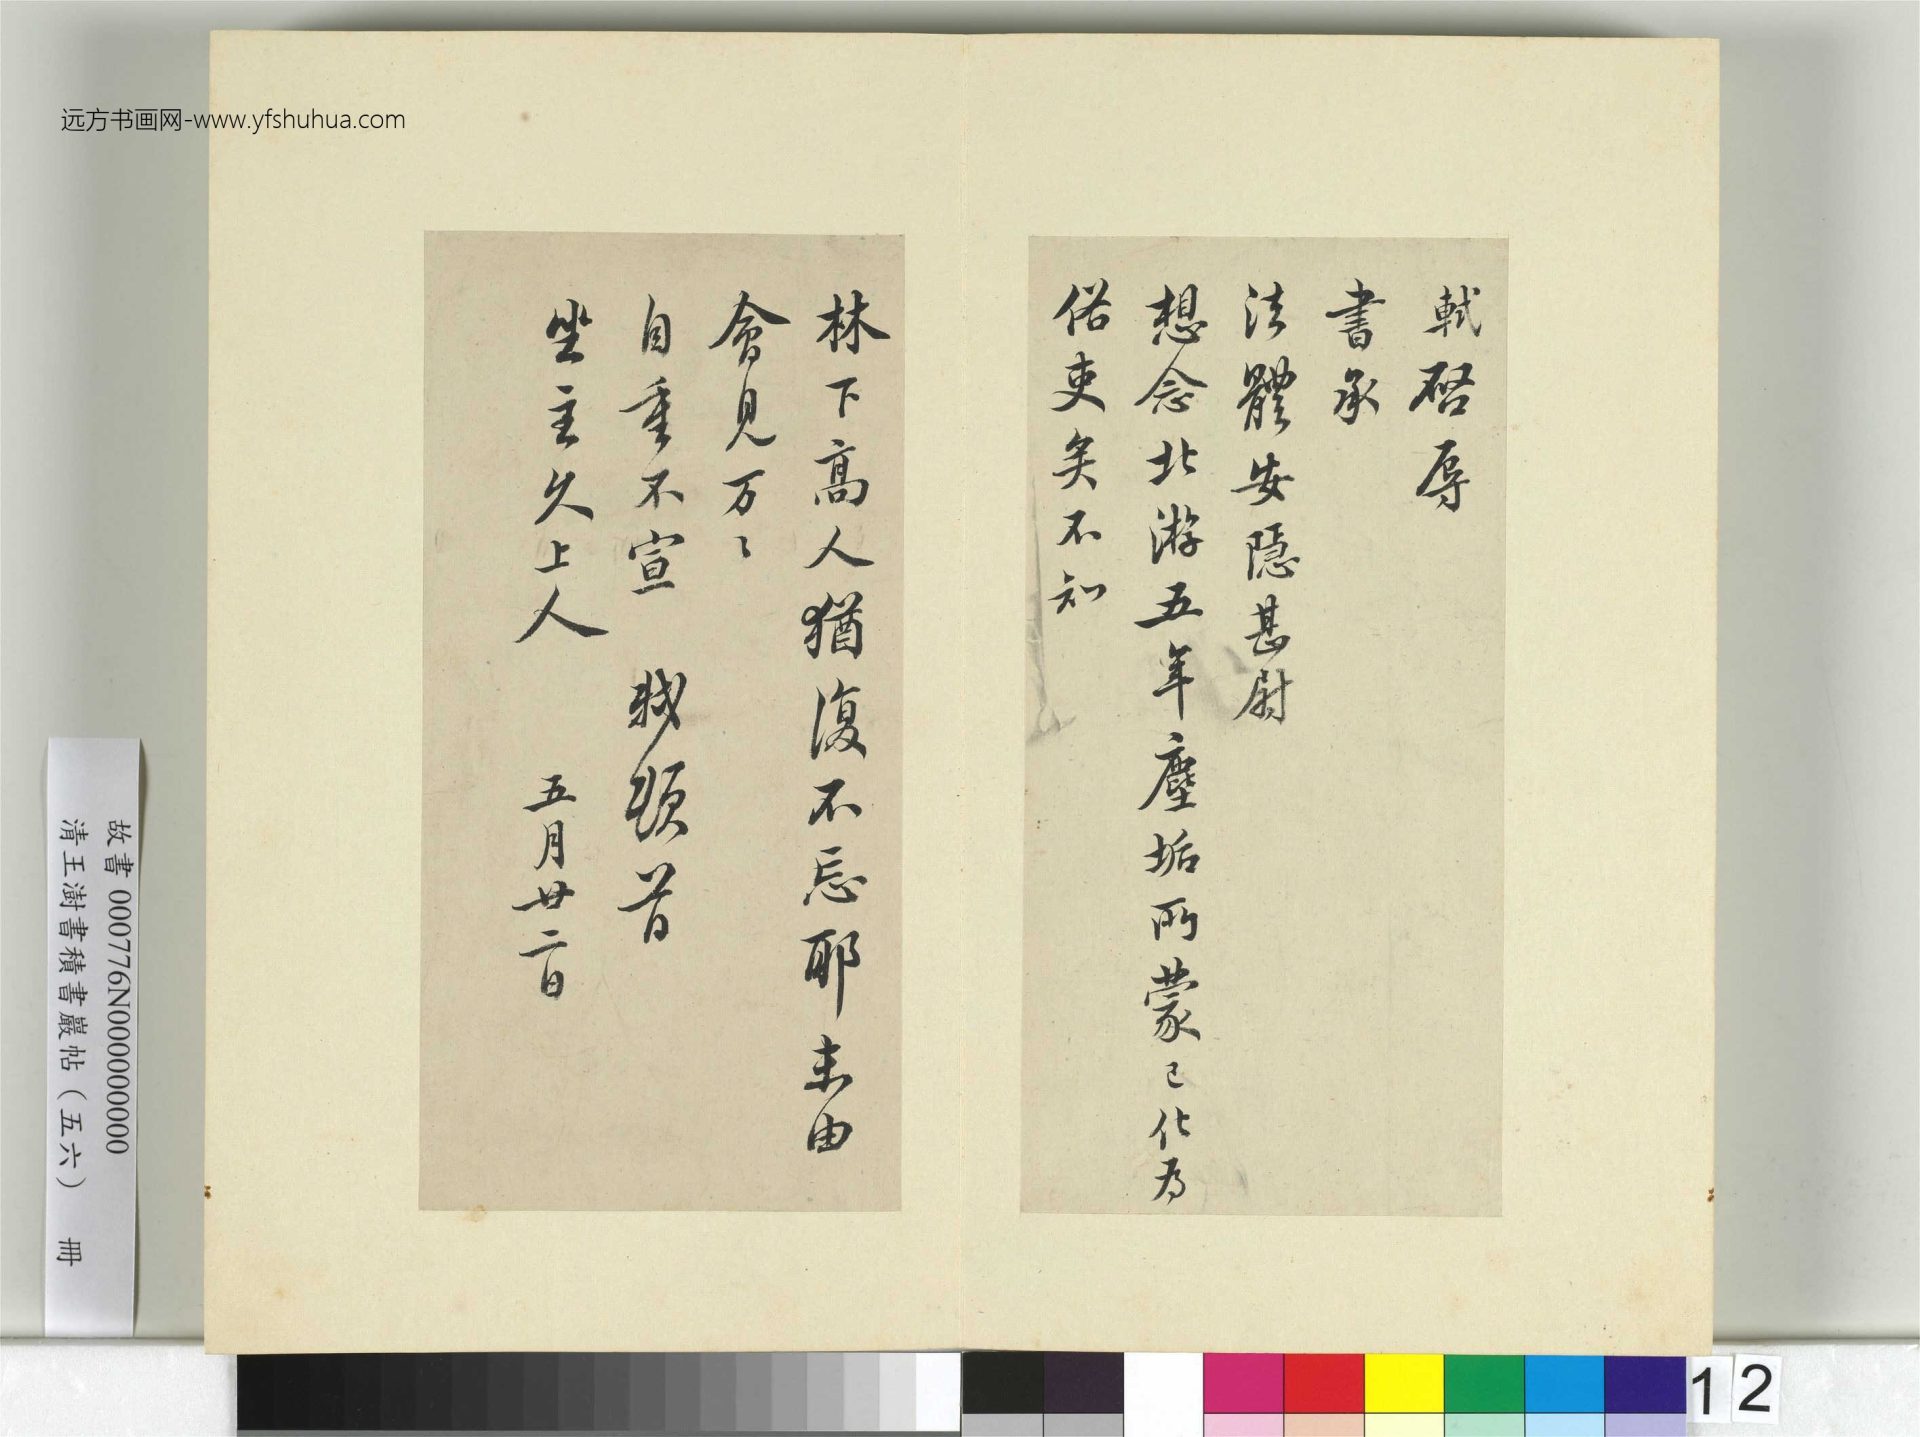 远方书画网-www.yfshuhua.com
軾啓辱
書承
法體安隱甚尉
想念北游五年塵垢所蒙已化為
俗吏矣不知
林下高人猶復不忘耶未由
會見万〻
自重不宣 軾頓首
坐主久上人 五月廿二日
故書 000776N000000000
清王澍書積書巖帖（五六） 冊
12